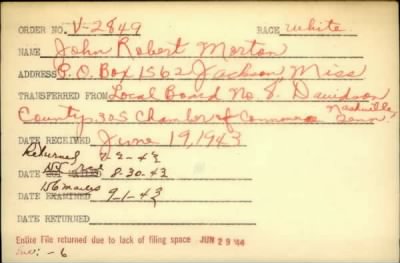 ORDER NO. V-2849 RACE White
NAME John Robert Morton
ADDRESS P.O. Box 1562 Jackson, Miss
TRANSFERRED FROM Local Board No 8. Davidson
County, 305 Chamber of Commerce Nashville, Tenn
DATE RECEIVED June 19, 1943
Returned 7-2-43
DATE 8-30-43
DATE EXAMINED 9-1-43
DATE RETURNED
Entire File returned due to lack of filing space JUN 29 '44